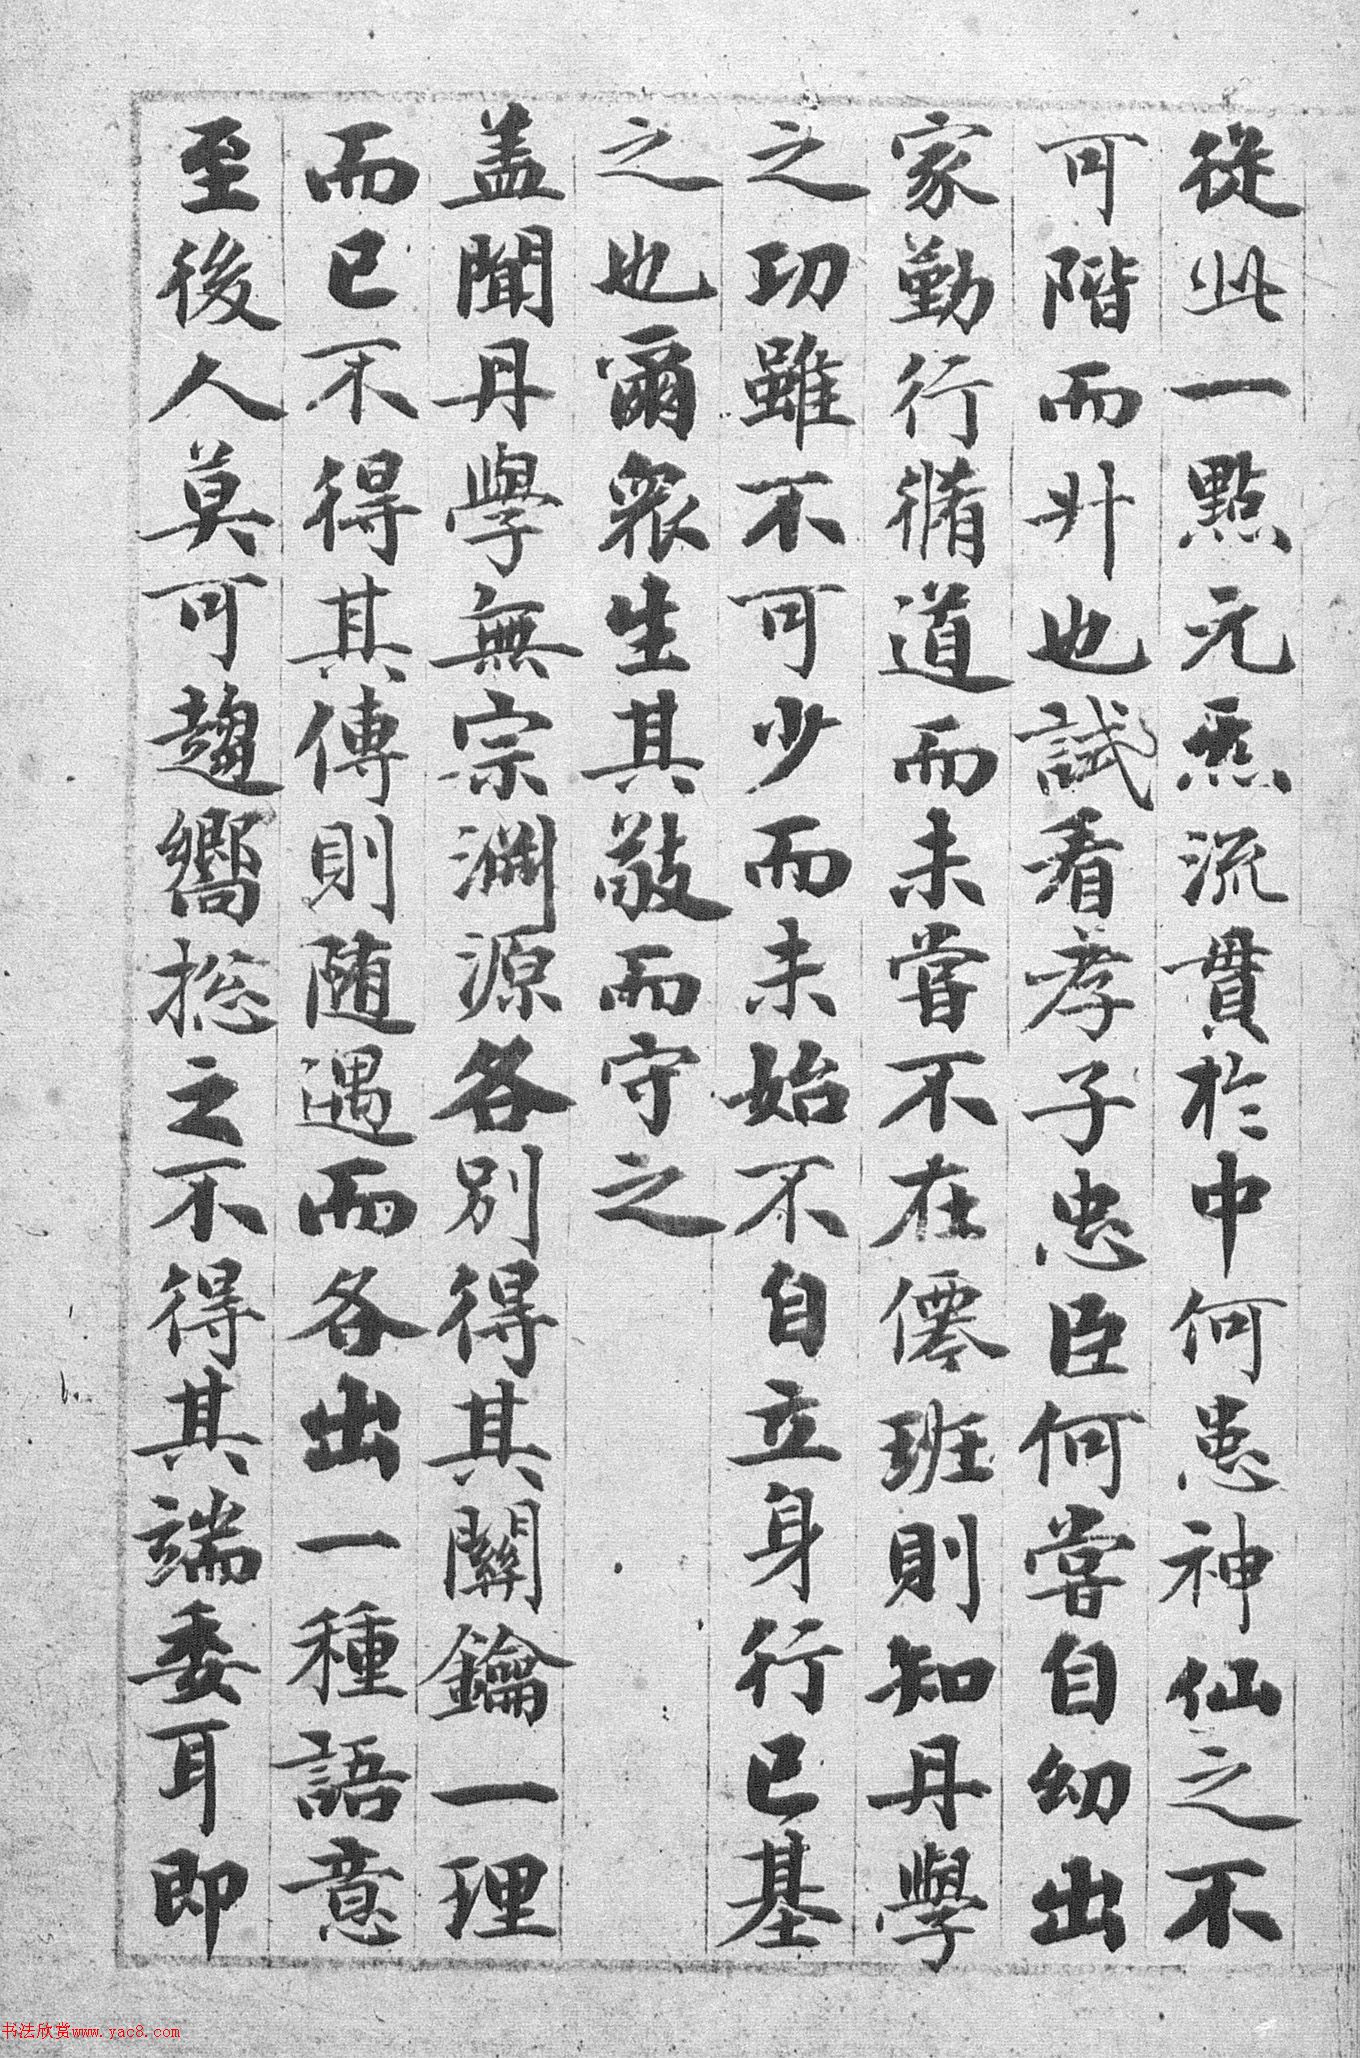 從此一點元炁流貫於中何患神仙之不
可階而升也試看孝子忠臣何嘗自幼出
家勤行脩道而未嘗不在僊班則知丹學
之功雖不可少而未始不自立身行已基
之也爾衆生其敬而守之
盖聞丹學無宗淵源各別得其關鑰一理
而已不得其傳則随遇而各出一種語意
至後人莫可趨嚮捴之不得其端委耳即
书法欣赏www.yac8.com